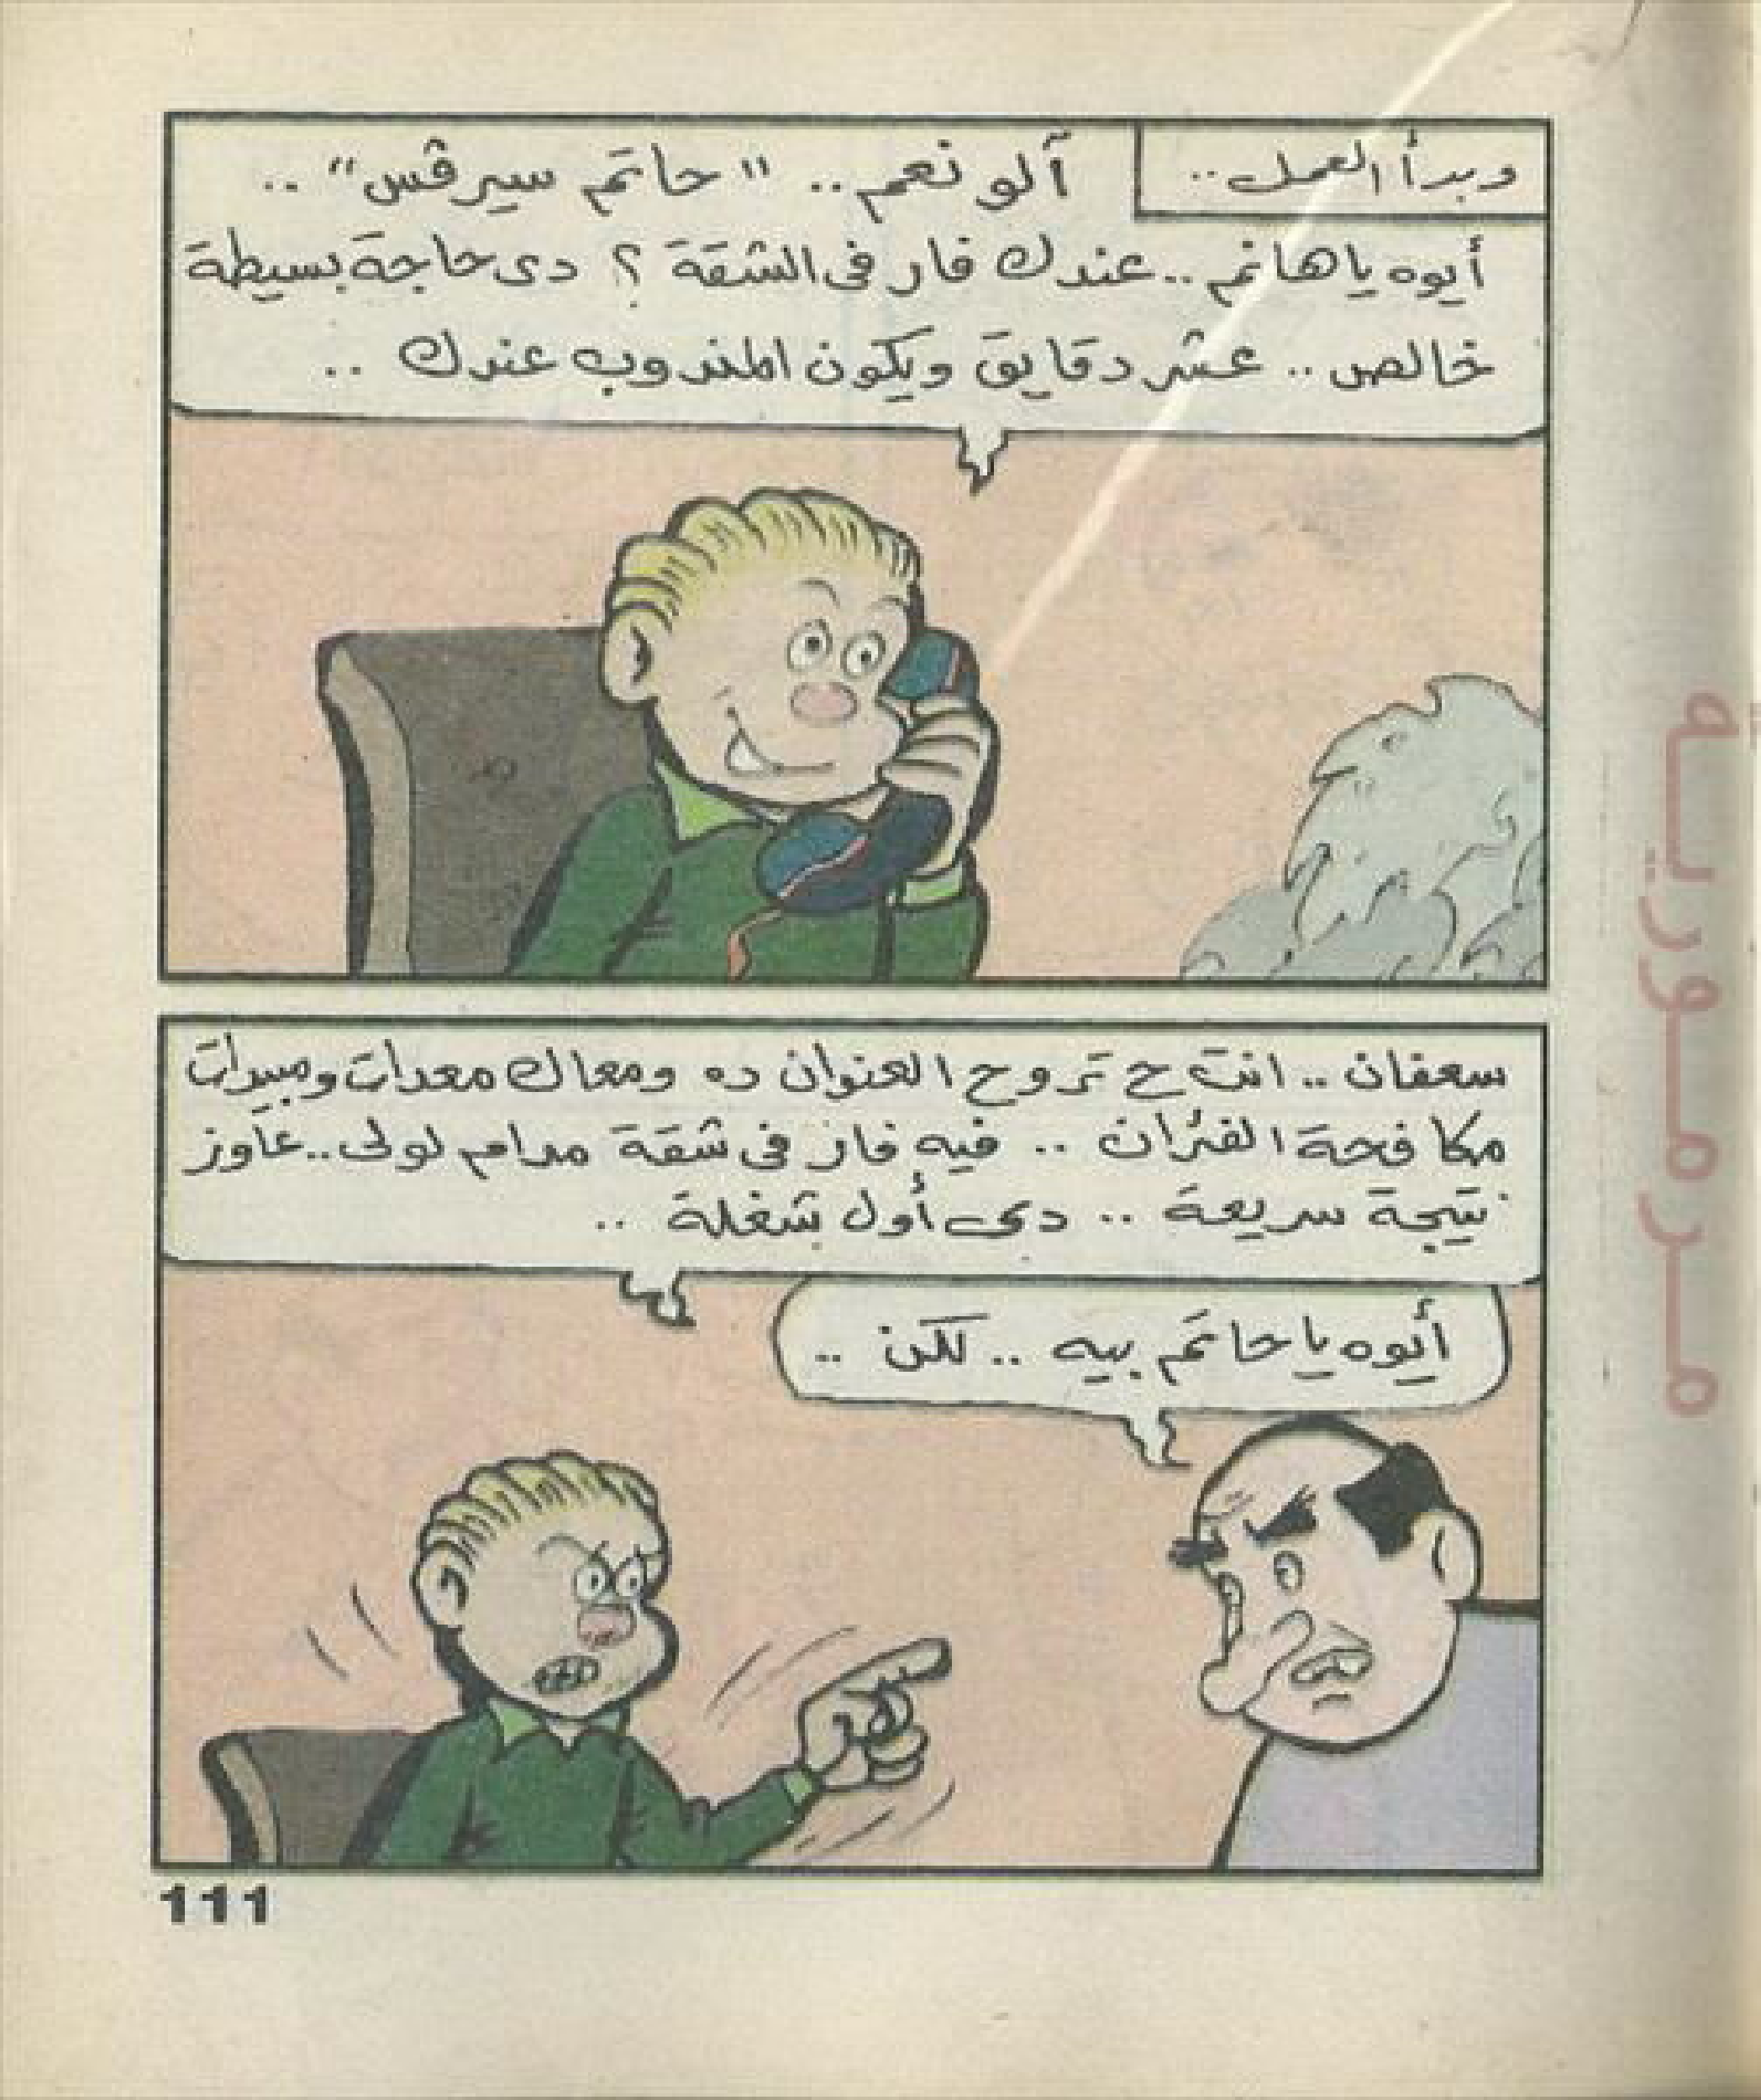 وبدأ العمل..
آلو نعم.. "حاتم سيرڤس" ..
أيوه يا هانم .. عندك فار فى الشقة ؟ دى حاجة بسيطة
خالص .. عشر دقايق ويكون المندوب عندك ..
سعفان .. انت ح تروح العنوان ده ومعاك معدات ومبيدات
مكافحة الفئران .. فيه فار فى شقة مدام لولى .. عاوز
نتيجة سريعة .. دى أول شغلة ..
أيوه يا حاتم بيه .. لكن ..
111
مـرمـوريـه